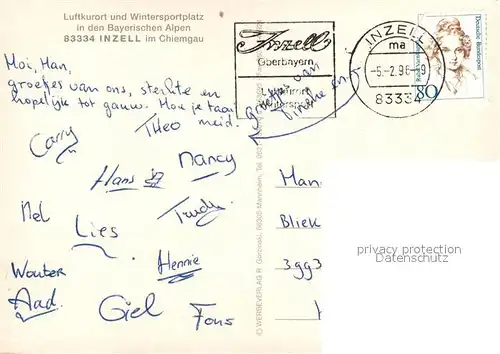 Luftkurort und Wintersportplatz
in den Bayerischen Alpen
83334 INZELL im Chiemgau
Inzell
Oberbayern
Luftkurort
Wintersport
INZELL
ma
-5.-2.96-9
83334
Deutsche Bundespost
80
Moi, Han,
groetjes van ons, sterkte en
hopelijk tot gauw. Hou je taai
meid.
Groetjes van
Vineke en
THEO
Carry
Nancy
Hans
Nel
Trudy
Lies
Wouter
Hennie
Aad.
Giel
Fons
Han
Bliek
3993
privacy protection
Datenschutz
(C) WERBEVERLAG R. Gorinski, 68305 Mannheim, Tel.